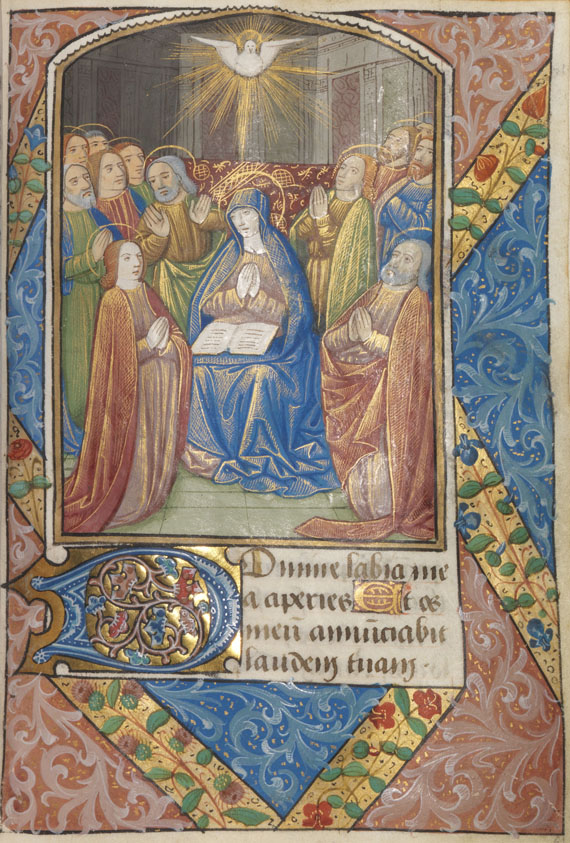 Domine labia me
a aperies Et os
meū annūciabit
laudem tuam .